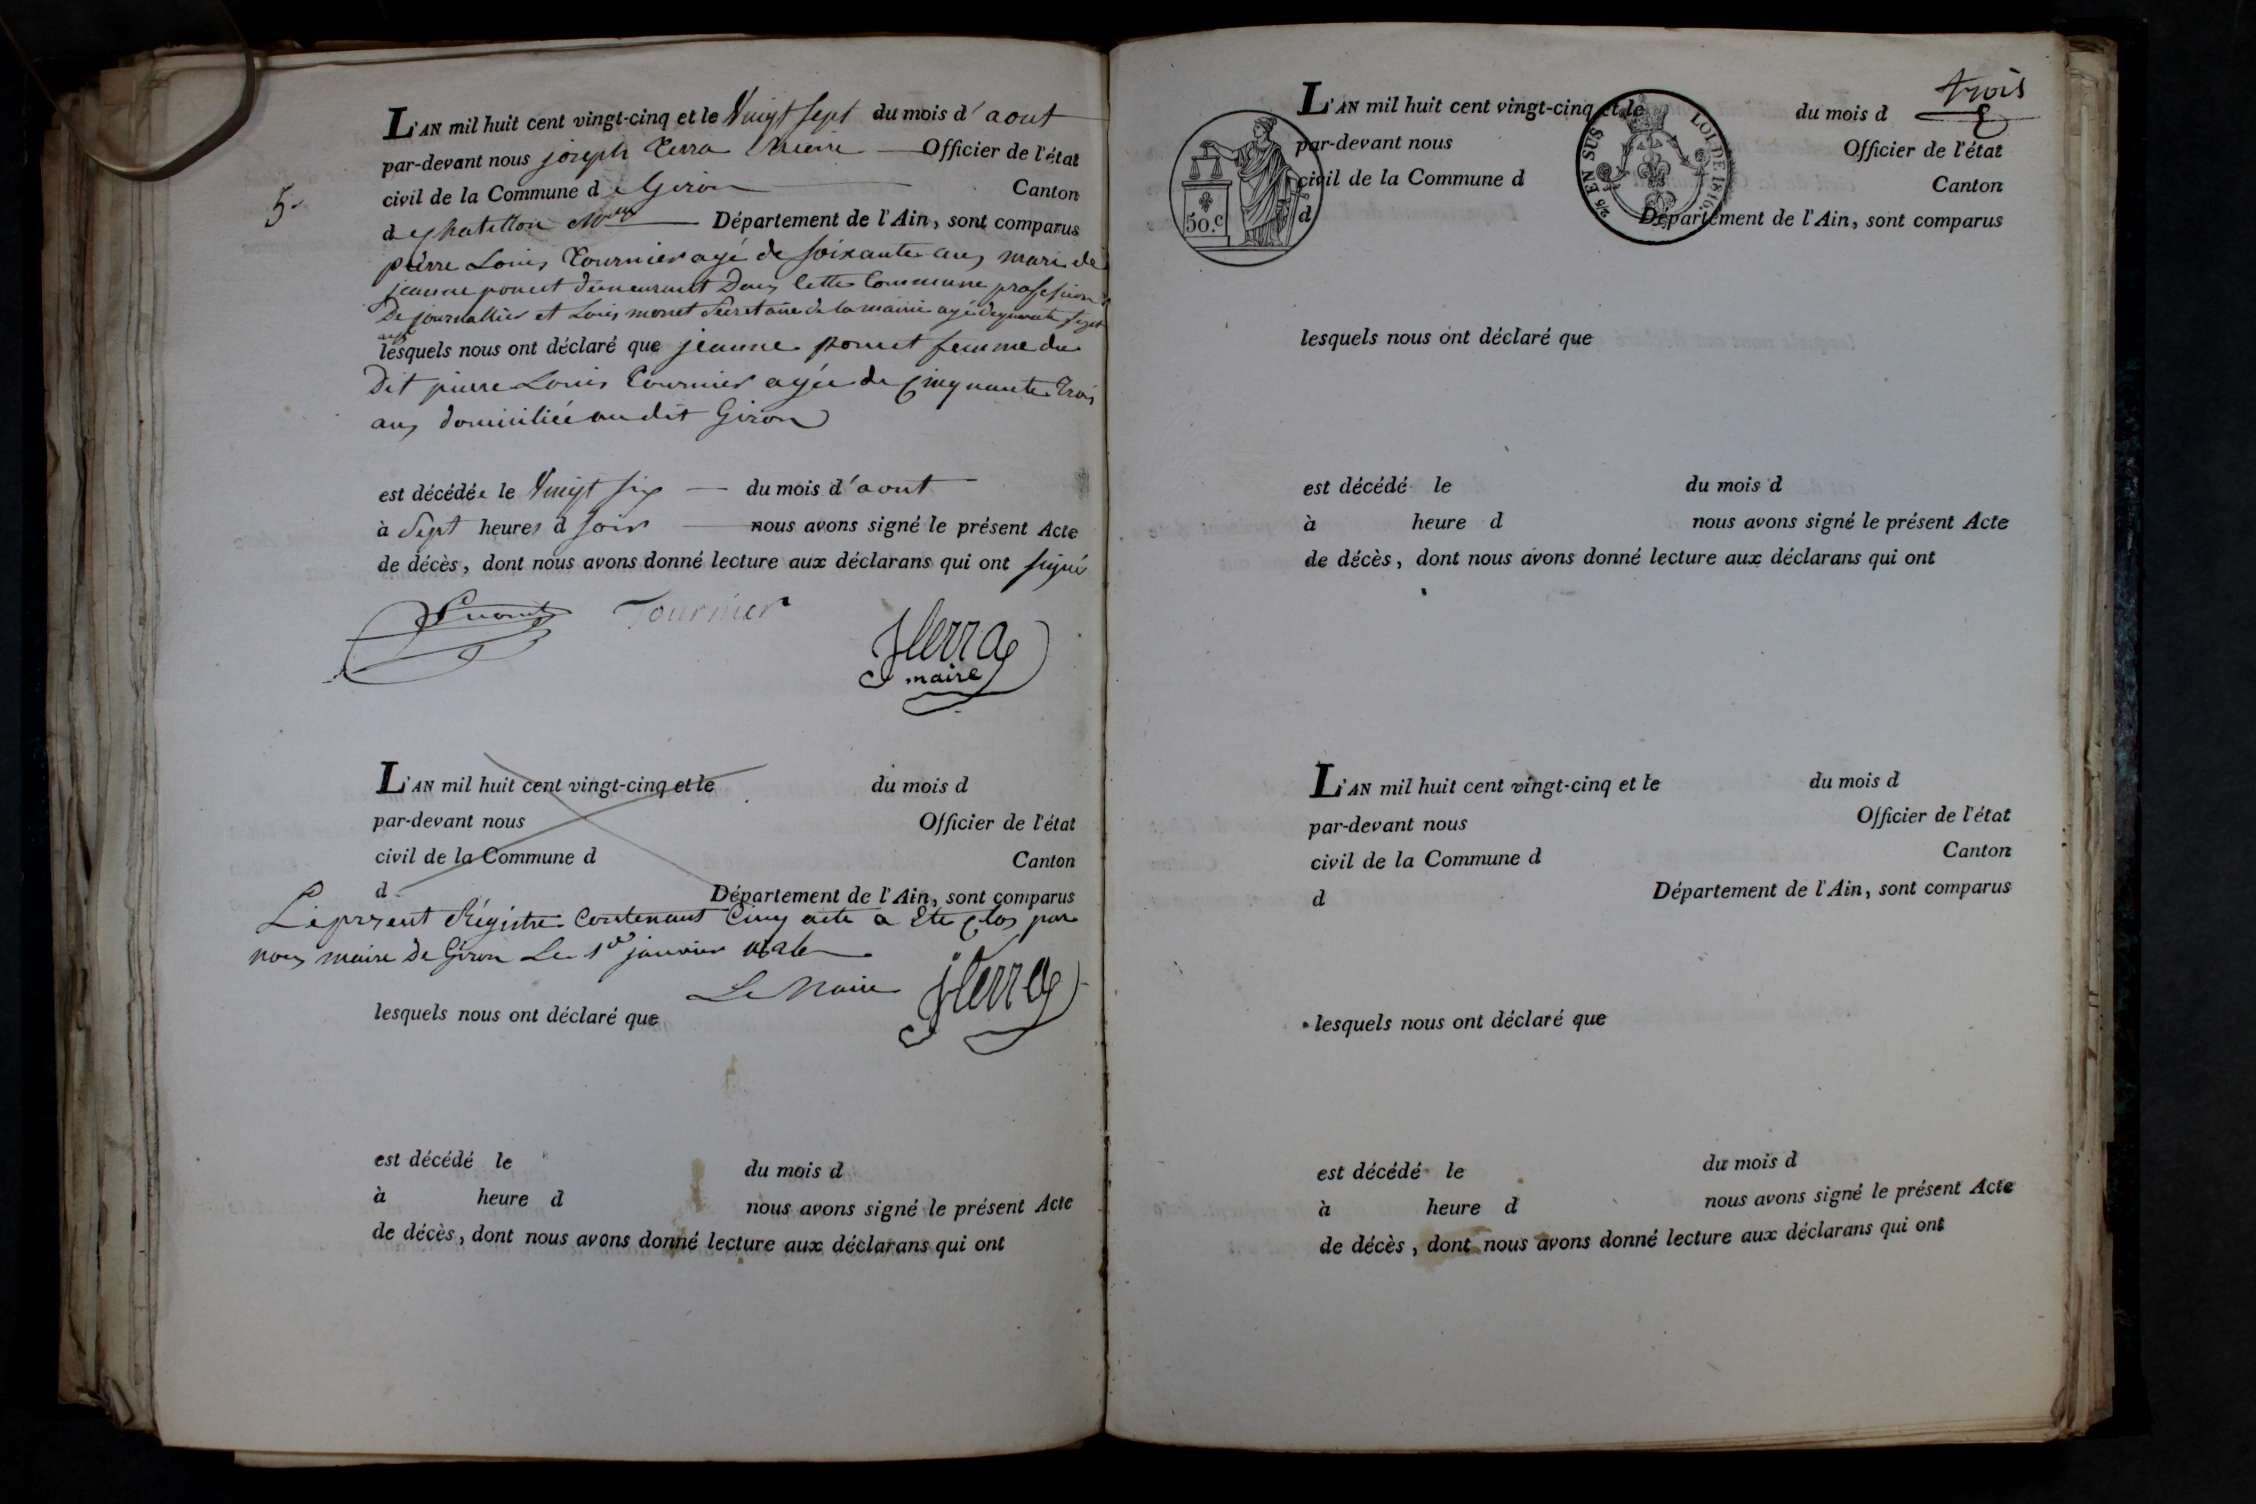 L'AN mil huit cent vingt-cinq et le Vingt sept du mois d'aout
par-devant nous joseph Terra Maire Officier de l'état
civil de la Commune de Giron Canton
5.
de chatillon Département de l'Ain, sont comparus
pierre Louis Tournier agé de soixante ans mari de
jeanne poncet demeurant Dans cette Commune profession
De journallier et Louis monet Secretaire de la mairie agé de quarante sept
ans
lesquels nous ont déclaré que jeanne poncet femme du
Dit pierre Louis Tournier agée de Cinquante Trois
ans domiciliée au dit Giron
est décédée le Vingt six du mois d'aout
à Sept heures d soir nous avons signé le présent Acte
de décès, dont nous avons donné lecture aux déclarans qui ont signé
Tournier
jterra
maire
L'AN mil huit cent vingt-cinq et le du mois d
par-devant nous Officier de l'état
civil de la Commune d Canton
d Département de l'Ain, sont comparus
Le present Régistre Contenant Cinq acte a Eté Clos par
nous maire de Giron Le 1er janvier 1826
Le Maire jterra
lesquels nous ont déclaré que
est décédé le du mois d
à heure d nous avons signé le présent Acte
de décès, dont nous avons donné lecture aux déclarans qui ont
trois
L'AN mil huit cent vingt-cinq et le du mois d
par-devant nous Officier de l'état
civil de la Commune d Canton
d Département de l'Ain, sont comparus
50.C
2/5 EN SUS LOI DE 1816.
lesquels nous ont déclaré que
est décédé le du mois d
à heure d nous avons signé le présent Acte
de décès, dont nous avons donné lecture aux déclarans qui ont
L'AN mil huit cent vingt-cinq et le du mois d
par-devant nous Officier de l'état
civil de la Commune d Canton
d Département de l'Ain, sont comparus
lesquels nous ont déclaré que
est décédé le du mois d
à heure d nous avons signé le présent Acte
de décès, dont nous avons donné lecture aux déclarans qui ont